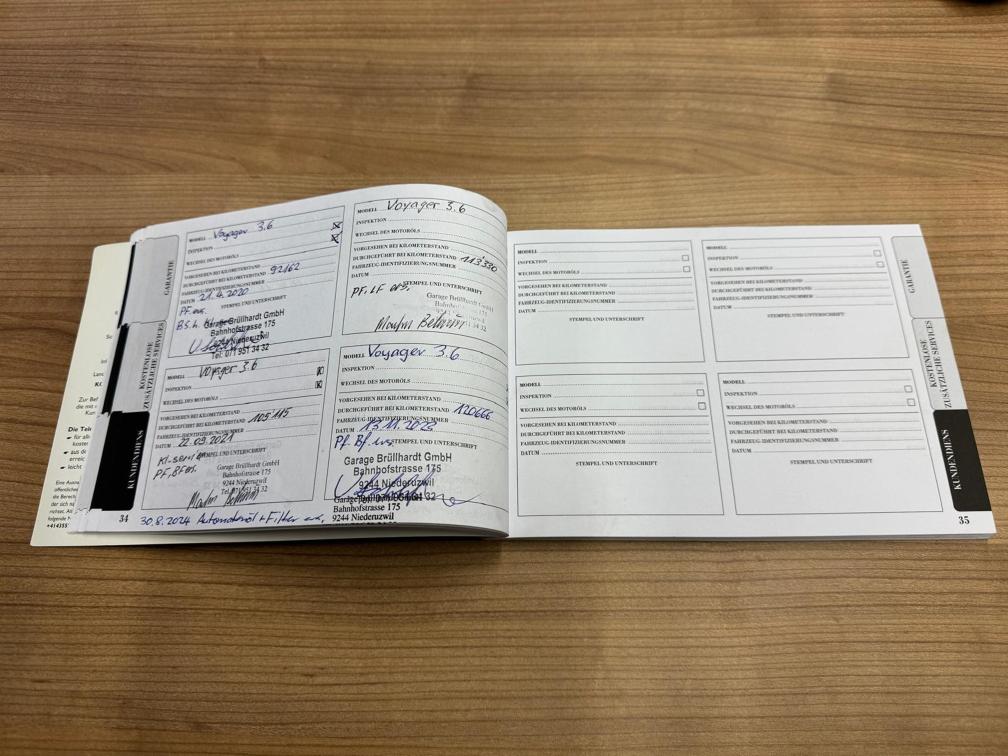 MODELL Voyager 3.6
INSPEKTION
WECHSEL DES MOTORÖLS
VORGESEHEN BEI KILOMETERSTAND
DURCHGEFÜHRT BEI KILOMETERSTAND 92162
FAHRZEUG-IDENTIFIZIERUNGSNUMMER
DATUM 21.4.2020
STEMPEL UND UNTERSCHRIFT
PF.
Garage Brüllhardt GmbH
Bahnhofstrasse 175
9244 Niederuzwil
Tel. 071 951 34 32
MODELL Voyager 3.6
INSPEKTION
WECHSEL DES MOTORÖLS
VORGESEHEN BEI KILOMETERSTAND
DURCHGEFÜHRT BEI KILOMETERSTAND 113'330
FAHRZEUG-IDENTIFIZIERUNGSNUMMER
DATUM
STEMPEL UND UNTERSCHRIFT
PF, LF ers,
Garage Brüllhardt GmbH
Bahnhofstrasse 175
MODELL Voyager 3.6
INSPEKTION
WECHSEL DES MOTORÖLS
VORGESEHEN BEI KILOMETERSTAND
DURCHGEFÜHRT BEI KILOMETERSTAND 105'115
FAHRZEUG-IDENTIFIZIERUNGSNUMMER
DATUM 22.09.2021
STEMPEL UND UNTERSCHRIFT
Kl. service
PF, BF ers.
Garage Brüllhardt GmbH
Bahnhofstrasse 175
9244 Niederuzwil
Tel. 071 951 34 32
MODELL Voyager 3.6
INSPEKTION
WECHSEL DES MOTORÖLS
VORGESEHEN BEI KILOMETERSTAND
DURCHGEFÜHRT BEI KILOMETERSTAND 120666
FAHRZEUG-IDENTIFIZIERUNGSNUMMER
DATUM 13.11.2023
Pf. Bf. ers STEMPEL UND UNTERSCHRIFT
Garage Brüllhardt GmbH
Bahnhofstrasse 175
9244 Niederuzwil
Bahnhofstrasse 175
9244 Niederuzwil
34 30.8.2024 Automatenöl + Filter ers,
GARANTIE
KOSTENLOSE
ZUSÄTZLICHE SERVICES
KUNDENDIENS
MODELL
INSPEKTION
WECHSEL DES MOTORÖLS
VORGESEHEN BEI KILOMETERSTAND
DURCHGEFÜHRT BEI KILOMETERSTAND
FAHRZEUG-IDENTIFIZIERUNGSNUMMER
DATUM
STEMPEL UND UNTERSCHRIFT
MODELL
INSPEKTION
WECHSEL DES MOTORÖLS
VORGESEHEN BEI KILOMETERSTAND
DURCHGEFÜHRT BEI KILOMETERSTAND
FAHRZEUG-IDENTIFIZIERUNGSNUMMER
DATUM
STEMPEL UND UNTERSCHRIFT
MODELL
INSPEKTION
WECHSEL DES MOTORÖLS
VORGESEHEN BEI KILOMETERSTAND
DURCHGEFÜHRT BEI KILOMETERSTAND
FAHRZEUG-IDENTIFIZIERUNGSNUMMER
DATUM
STEMPEL UND UNTERSCHRIFT
MODELL
INSPEKTION
WECHSEL DES MOTORÖLS
VORGESEHEN BEI KILOMETERSTAND
DURCHGEFÜHRT BEI KILOMETERSTAND
FAHRZEUG-IDENTIFIZIERUNGSNUMMER
DATUM
STEMPEL UND UNTERSCHRIFT
GARANTIE
KOSTENLOSE
ZUSÄTZLICHE SERVICES
KUNDENDIENS
35